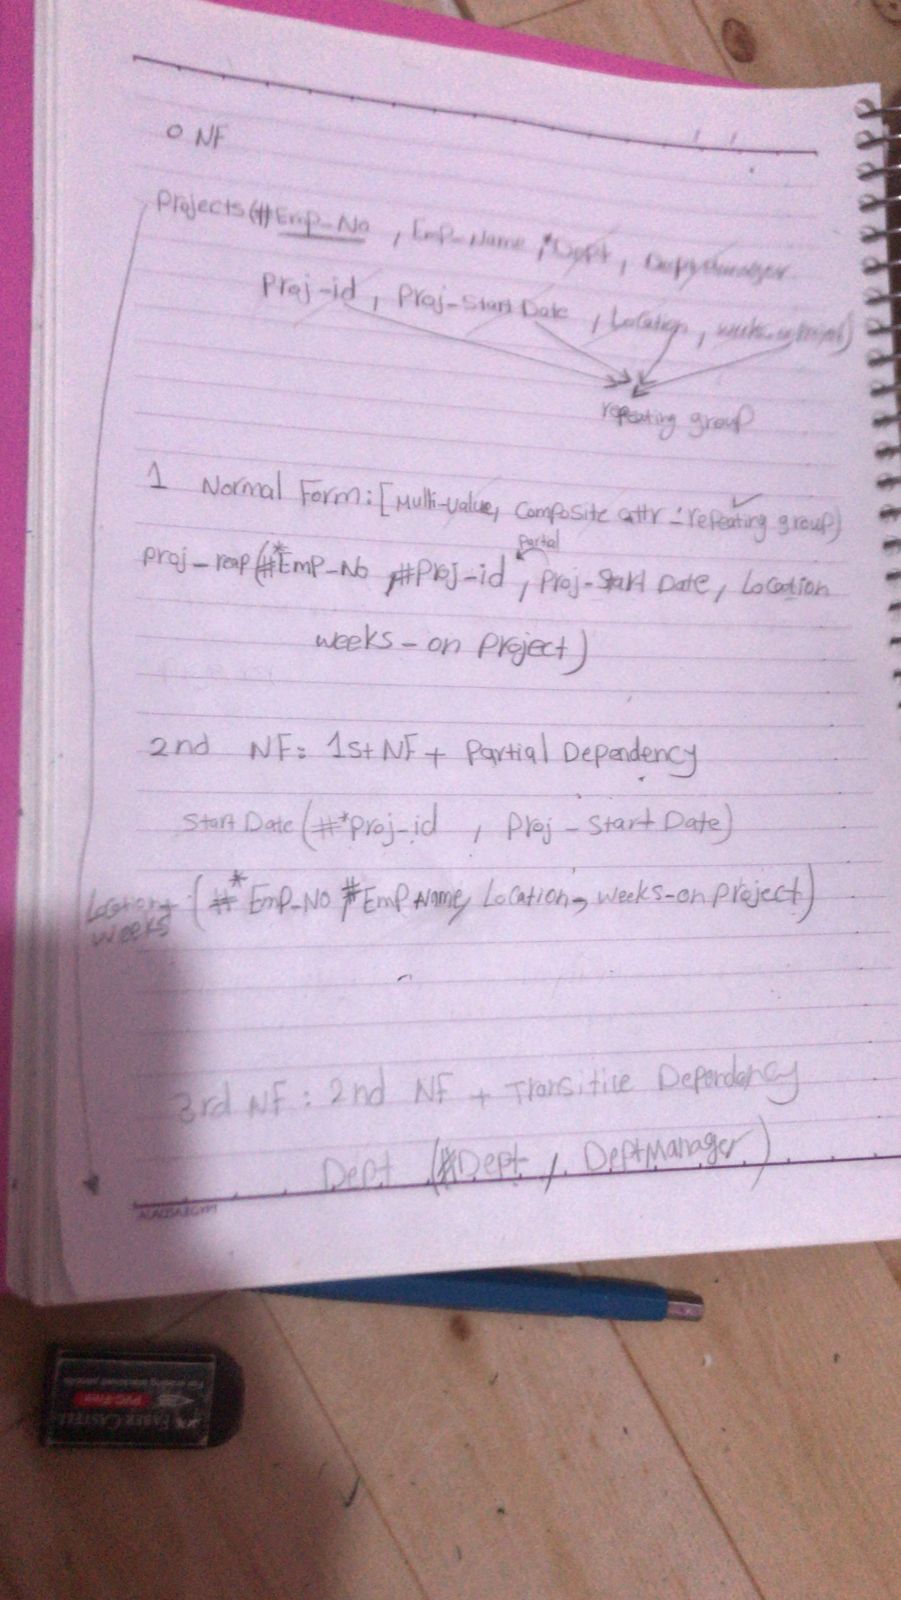 0 NF
Projects(#Emp_No , Emp_Name , *Dept , DeptManager
Proj-id , Proj-Start Date , Location , weeks-on Project)
repeating group
1 Normal Form: [Multi-value, Composite attr - repeating group]
partial
Proj_reap(#*Emp_No , #Proj-id , Proj-Start Date , Location
weeks-on Project)
2nd NF: 1st NF + Partial Dependency
Start Date (#*Proj-id , Proj-Start Date)
Location weeks (#*Emp_No #Emp Name, Location, weeks-on Project)
3rd NF: 2nd NF + Transitive Dependancy
Dept (#Dept , DeptManager)
FABER CASTELL
PVC-Free